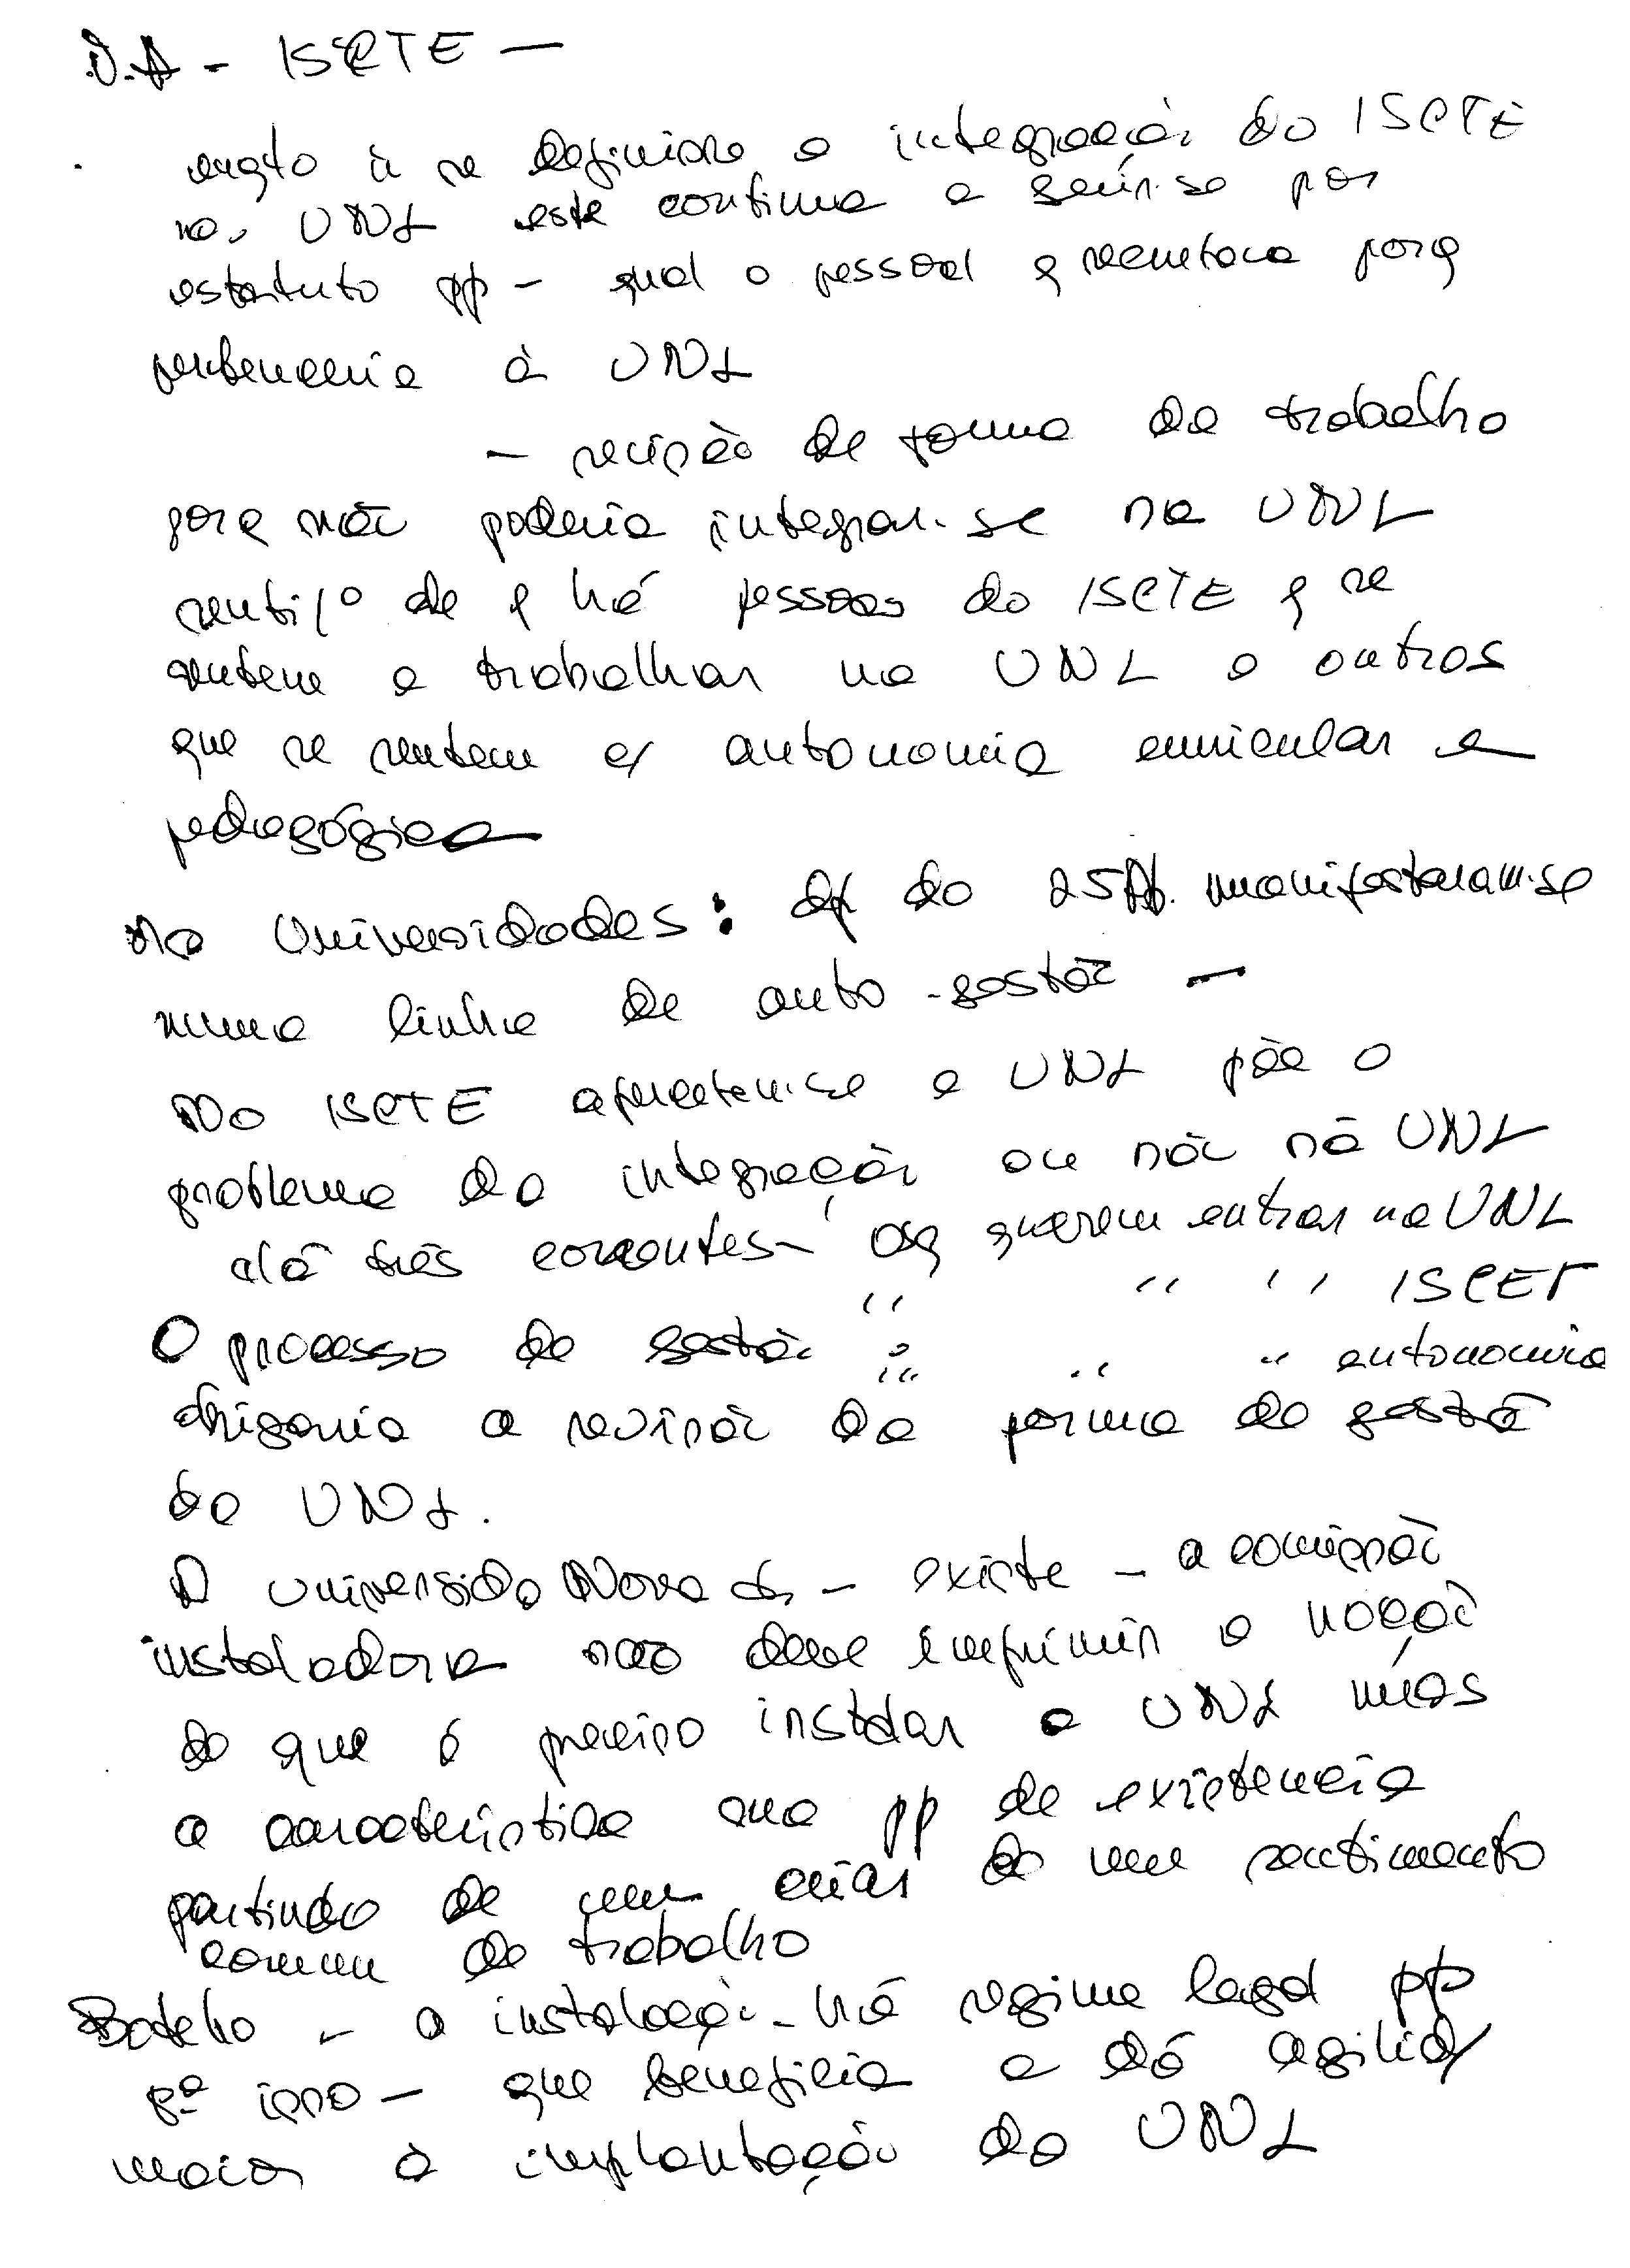 D.A - ISCTE -
enqto ñ se definisse a integração do ISCTE
na UNL este continua a servir-se por
estatuto pp - qual o pessoal q recrutava porq
pertenceria à UNL
- revisão de forma de trabalho
porq não poderia integrar-se na UNL
senti/o de q há pessoas do ISCTE q se
sentem a trabalhar na UNL e outros
que se sentem c/ autonomia curricular e
pedagógica
Na Universidades: dp do 25 A. manifestaram-se
numa linha de auto-gestão -
No ISCTE a UNL põe o
problema da integração ou não na UNL
Há três correntes - os q querem entrar na UNL
" " " ISCET
O processo de gestão " " " autonomia
obrigaria a revisão da forma de gestão
da UNL.
A Universid. Nova de - existe - a comissão
instaladora não deve imprimir a noção
de que é preciso instalar a UNL mas
a característica sua pp de existencia
partindo de um criar de um sentimento
comum de trabalho
Botelho - a instalação - há regime legal pp
pª isso - que beneficia e dá agilid/
maior à implantação da UNL